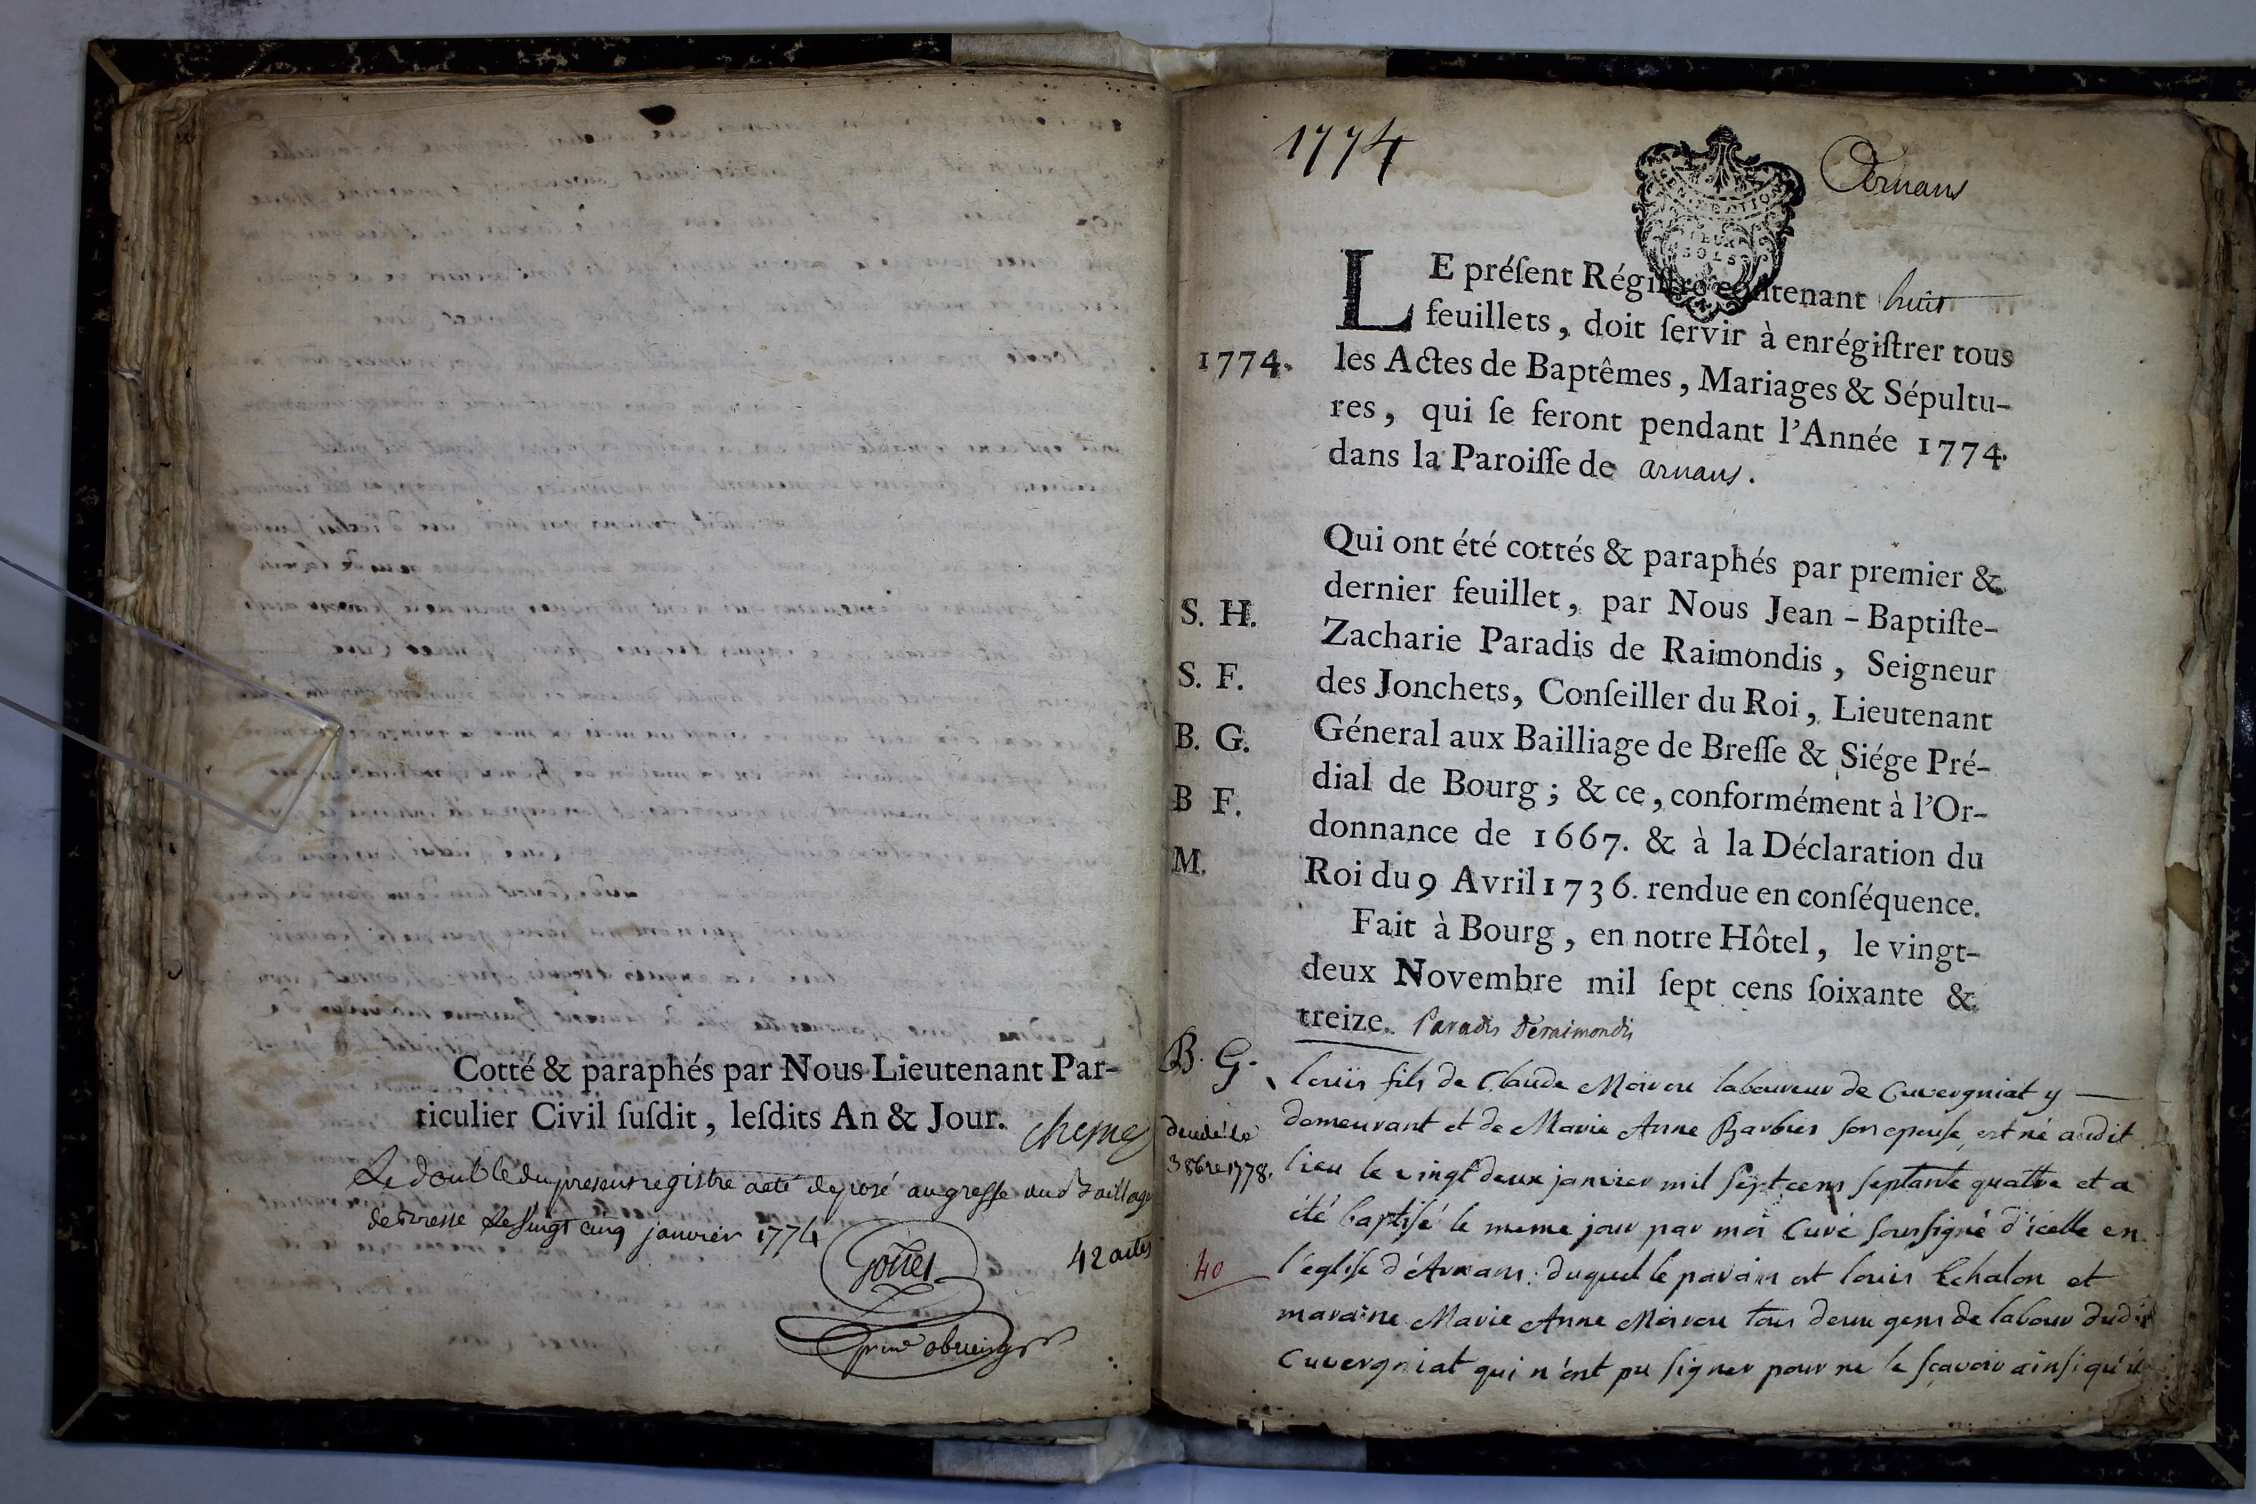 Cotté & paraphés par Nous Lieutenant Par-
ticulier Civil ſuſdit, leſdits An & Jour.
Le double du present registre a eté deposé au greffe du Baillage
de Bresse Le vingt cinq janvier 1774
42 actes
1774
Arnans
DEUX
SOLS
LE préſent Régiſtre contenant huit
feuillets, doit ſervir à enrégiſtrer tous
1774.
les Actes de Baptêmes, Mariages & Sépultu-
res, qui ſe feront pendant l'Année 1774.
dans la Paroiſſe de arnans.
Qui ont été cottés & paraphés par premier &
dernier feuillet, par Nous Jean-Baptiſte-
S. H.
Zacharie Paradis de Raimondis, Seigneur
S. F.
des Jonchets, Conſeiller du Roi, Lieutenant
B. G.
Géneral aux Bailliage de Breſſe & Siége Pré-
B F.
dial de Bourg; & ce, conformément à l'Or-
donnance de 1667. & à la Déclaration du
M.
Roi du 9 Avril 1736. rendue en conſéquence.
Fait à Bourg, en notre Hôtel, le vingt-
deux Novembre mil ſept cens ſoixante &
treize. Paradis Deraimondis
B. G.
louis fils de Claude Moirou laboureur de Cuvergniat y
demeurant et de Marie Anne Barbier son epouse est né audit
decedé le
3 8bre 1778.
lieu le vingt deux janvier mil sept cens septante quattre et a
été baptisé le meme jour par moi Curé soussigné d'icelle en
40
l'église d'Arnans: duquel le parain est louis Echalon et
maraine Marie Anne Moirou tous deux gens de labour dudit
Cuvergniat qui n'ont pu signer pour ne le sçavoir ainsi qu'il